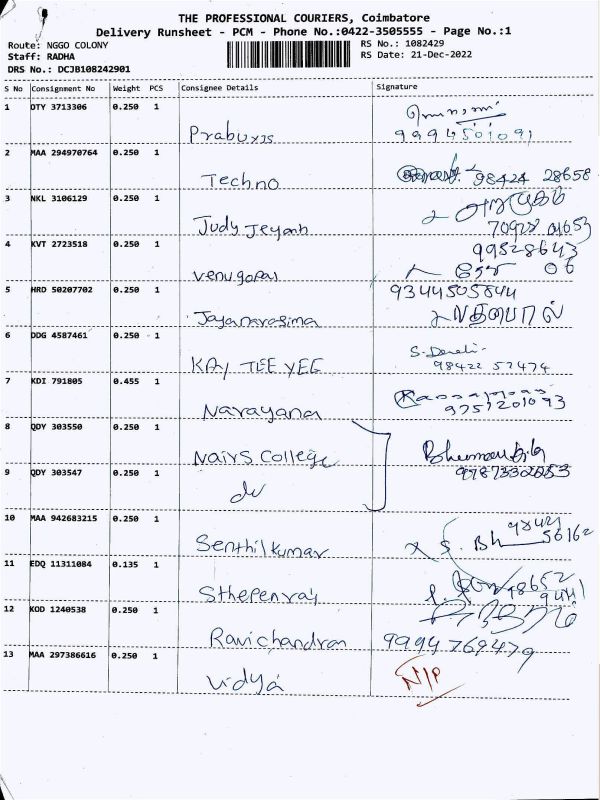 THE PROFESSIONAL COURIERS, Coimbatore
Delivery Runsheet - PCM - Phone No.:0422-3505555 - Page No.:1
Route: NGGO COLONY RS No.: 1082429
Staff: RADHA RS Date: 21-Dec-2022
DRS No.: DCJB108242901
S No Consignment No Weight PCS Consignee Details Signature
1 OTY 3713306 0.250 1
Prabu 9994501091
2 MAA 294970764 0.250 1
Techno 98424 28658
3 NKL 3106129 0.250 1 அறுமுகம்
Judy Jeyanth
4 KVT 2723518 0.250 1 99528643
venugopal 06
5 HRD 50207702 0.250 1 9344505844
Jayanarasima
6 DDG 4587461 0.250 1
KAY TEE YEE 98422 57474
7 KDI 791805 0.455 1
Narayana
8 QDY 303550 0.250 1
Nairs College
9 QDY 303547 0.250 1
do
10 MAA 942683215 0.250 1 98421
Senthilkumar S. Bh 56162
11 EDQ 11311084 0.135 1
Sthepenraj
12 KOD 1240538 0.250 1
Ravichandran 9994769479
13 MAA 297386616 0.250 1
Vidya N/P